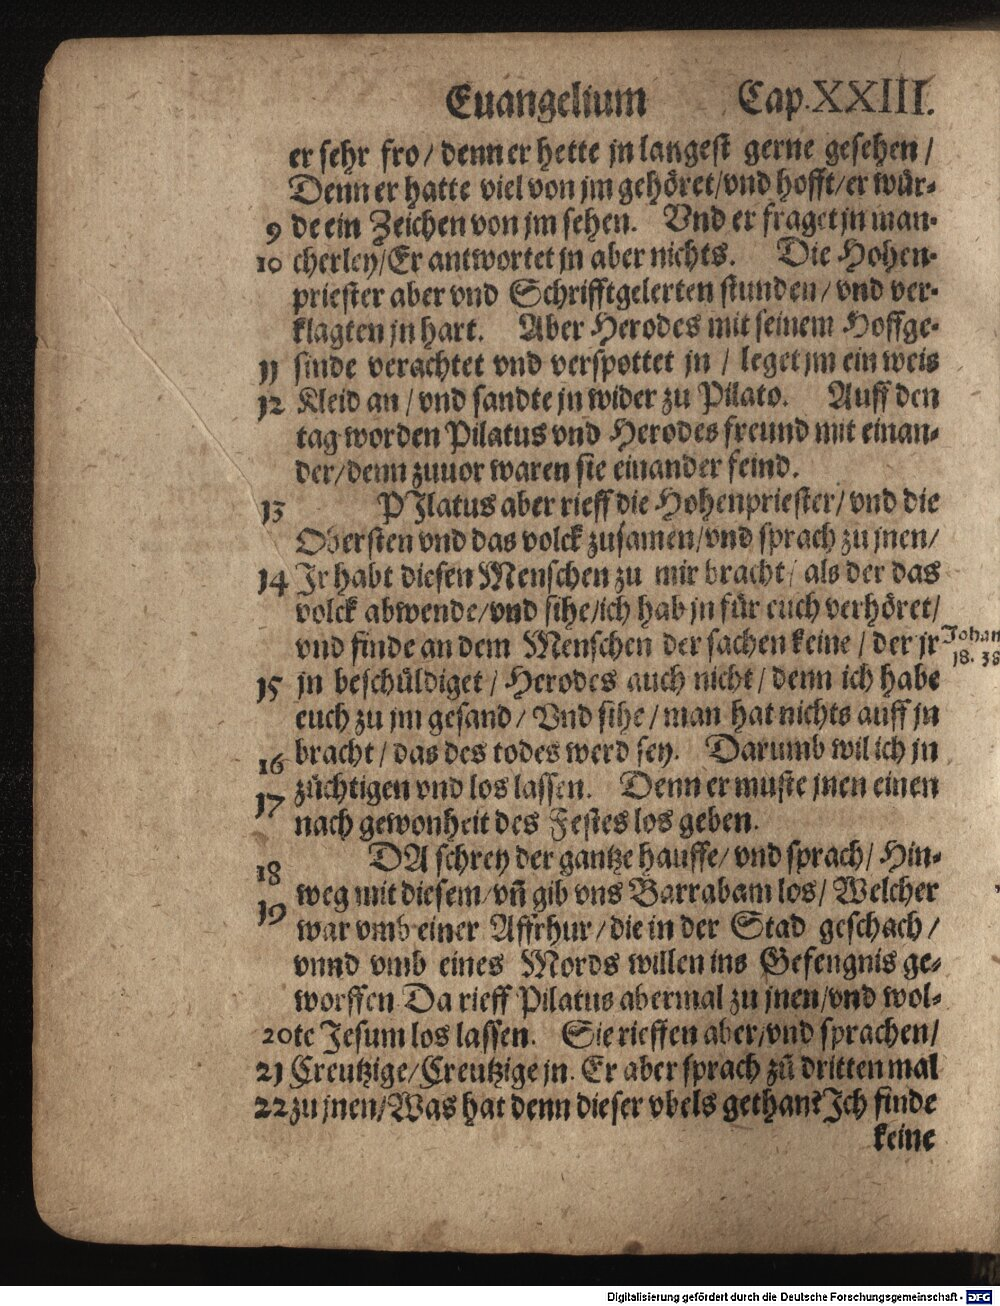 Euangelium Cap. XXIII.
er sehr fro / denn er hette jn langest gerne gesehen /
Denn er hatte viel von jm gehöret / vnd hofft / er wür-
9 de ein Zeichen von jm sehen. Vnd er fraget jn man-
10 cherley / Er antwortet jn aber nichts. Die Hohen-
priester aber vnd Schrifftgelerten stunden / vnd ver-
klagten jn hart. Aber Herodes mit seinem Hoffge-
11 sinde verachtet vnd verspottet jn / leget jm ein weis
12 Kleid an / vnd sandte jn wider zu Pilato. Auff den
tag worden Pilatus vnd Herodes freund mit einan-
der / denn zuuor waren sie einander feind.
13 PJlatus aber rieff die Hohenpriester / vnd die
Obersten vnd das volck zusamen / vnd sprach zu jnen /
14 Jr habt diesen Menschen zu mir bracht / als der das
volck abwende / vnd sihe / ich hab jn für euch verhöret /
vnd finde an dem Menschen der sachen keine / der jr
Johan
18. 38
15 jn beschüldiget / Herodes auch nicht / denn ich habe
euch zu jm gesand / Vnd sihe / man hat nichts auff jn
16 bracht / das des todes werd sey. Darumb wil ich jn
17 züchtigen vnd los lassen. Denn er muste jnen einen
nach gewonheit des Festes los geben.
18 DA schrey der gantze hauffe / vnd sprach / Hin-
19 weg mit diesem / vñ gib vns Barrabam los / Welcher
war vmb einer Affrhur / die in der Stad geschach /
vnnd vmb eines Mords willen ins Gefengnis ge-
worffen Da rieff Pilatus abermal zu jnen / vnd wol-
20 te Jesum los lassen. Sie rieffen aber / vnd sprachen /
21 Creutzige / Creutzige jn. Er aber sprach zū dritten mal
22 zu jnen / Was hat denn dieser vbels gethan? Jch finde
keine
Digitalisierung gefördert durch die Deutsche Forschungsgemeinschaft - DFG